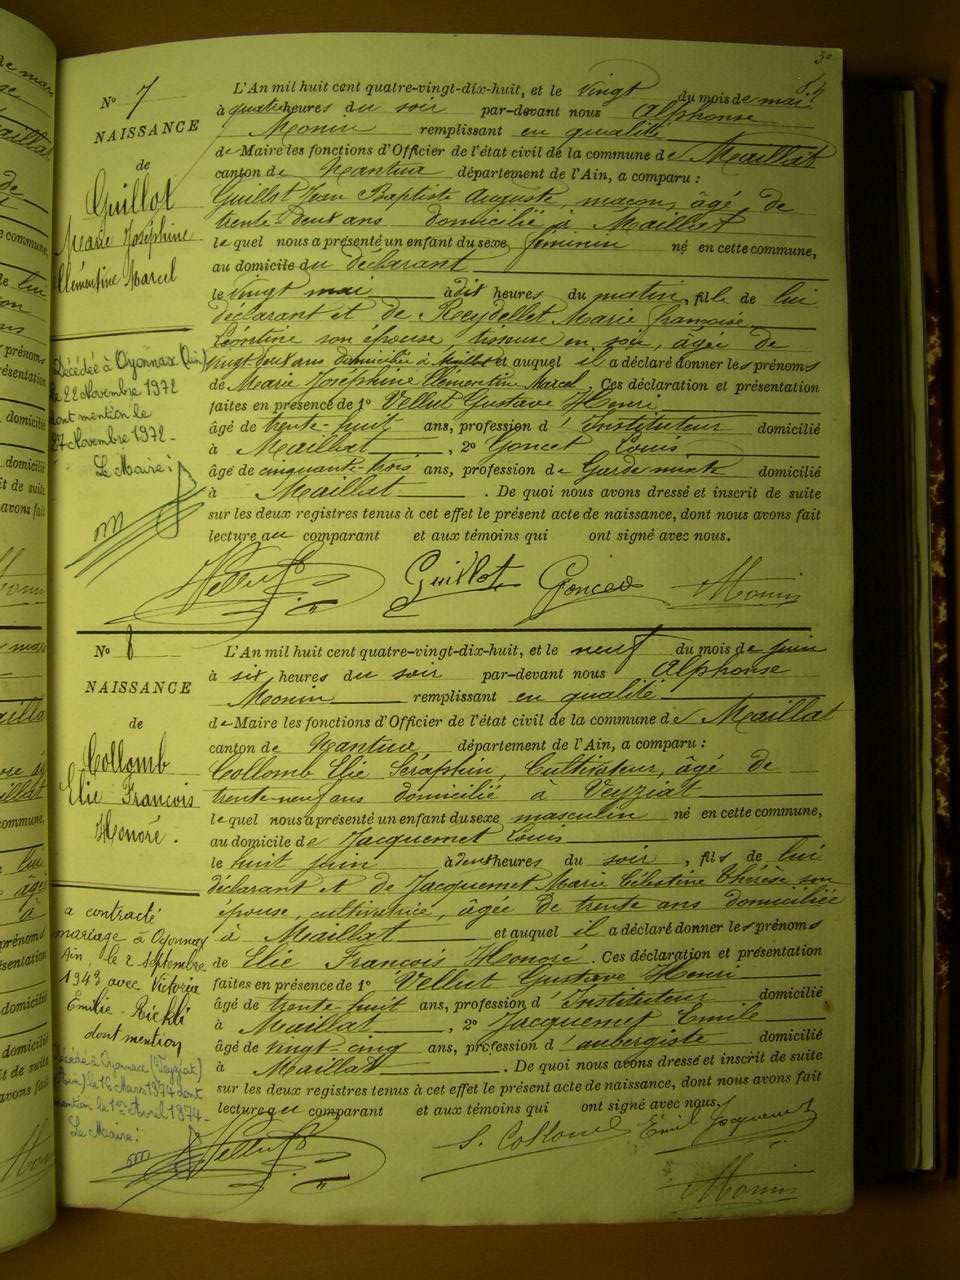 N° 7
NAISSANCE
de
Guillot
Marie Joséphine
Clémentine Marcel
Décédée à Oyonnax (Ain)
le 22 Novembre 1972
dont mention le
27 Novembre 1972 -
Le Maire :
L'An mil huit cent quatre-vingt-dix-huit, et le vingt du mois de mai
à quatre heures du soir par-devant nous Alphonse
Monin remplissant en qualité
de Maire les fonctions d'Officier de l'état civil de la commune de Maillat
canton de Nantua département de l'Ain, a comparu :
Guillot Jean Baptiste Auguste, maçon, âgé de
trente-deux ans domicilié à Maillat
lequel nous a présenté un enfant du sexe féminin né en cette commune,
au domicile du déclarant
le vingt mai à dix heures du matin, fille de lui
déclarant et de Reydellet Marie Françoise
Léontine son épouse tisseuse en soie, âgée de
vingt deux ans domiciliée à Maillat et auquel il a déclaré donner les prénoms
de Marie Joséphine Clémentine Marcel. Ces déclaration et présentation
faites en présence de 1° Vellut Gustave Henri
âgé de trente-huit ans, profession d'Instituteur domicilié
à Maillat, 2° Goncet Louis
âgé de cinquante-trois ans, profession de Garde mixte domicilié
à Maillat. De quoi nous avons dressé et inscrit de suite
sur les deux registres tenus à cet effet le présent acte de naissance, dont nous avons fait
lecture au comparant et aux témoins qui ont signé avec nous.
Vellut Guillot Goncet Monin
N° 8
NAISSANCE
de
Collomb
Elie François
Honoré.
a contracté
mariage à Oyonnax
Ain, le 2 Septembre
1943 avec Victoria
Emilie Richli
dont mention
Décédé à Oyonnax (Veyziat)
(Ain) le 16 Mars 1974 dont
mention le 1er Avril 1974
Le Maire :
L'An mil huit cent quatre-vingt-dix-huit, et le neuf du mois de juin
à six heures du soir par-devant nous Alphonse
Monin remplissant en qualité
de Maire les fonctions d'Officier de l'état civil de la commune de Maillat
canton de Nantua, département de l'Ain, a comparu :
Collomb Elie Séraphin, Cultivateur, âgé de
trente-neuf ans domicilié à Veyziat
lequel nous a présenté un enfant du sexe masculin né en cette commune,
au domicile de Jacquemet Louis
le huit juin à deux heures du soir, fils de lui
déclarant et de Jacquemet Marie Célestine Thérèse son
épouse, cultivatrice, âgée de trente ans domiciliée
à Maillat et auquel il a déclaré donner les prénoms
de Elie François Honoré. Ces déclaration et présentation
faites en présence de 1° Vellut Gustave Henri
âgé de trente-huit ans, profession d'Instituteur domicilié
à Maillat, 2° Jacquemet Emile
âgé de vingt cinq ans, profession d'aubergiste domicilié
à Maillat. De quoi nous avons dressé et inscrit de suite
sur les deux registres tenus à cet effet le présent acte de naissance, dont nous avons fait
lecture au comparant et aux témoins qui ont signé avec nous.
Vellut S. Collomb Emile Jacquemet
Monin